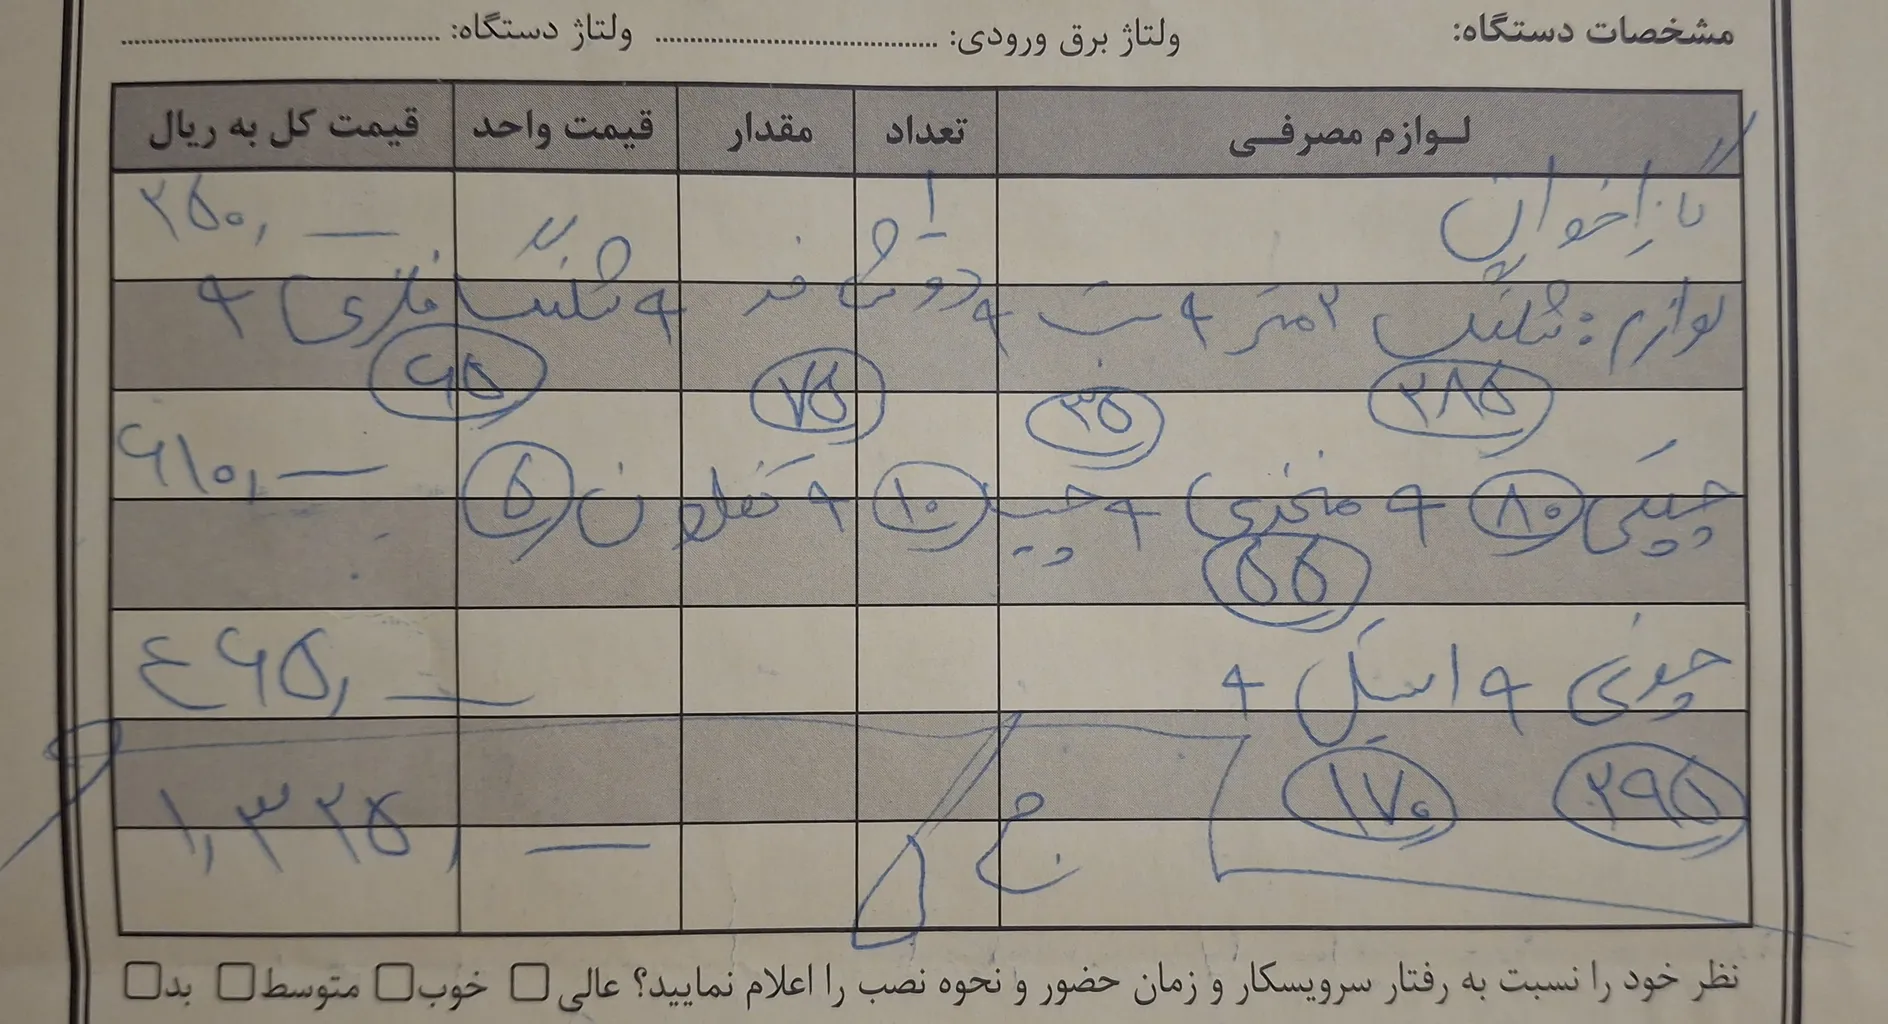 مشخصات دستگاه: ولتاژ برق ورودی: ........................ ولتاژ دستگاه: ........................
لـوازم مصرفـی تعداد مقدار قیمت واحد قیمت کل به ریال
گاز اخوان ۱ ۲۵۰,—
لوازم: شلنگ ۲ متر + بست + دوش فنر + شلنگ فلزی +
۳۸۵ ۳۵ ۷۵ ۶۵
چپقی ۸۰ + مغزی + چسب ۱۰ + تفلون ۵ ۶۱۰,—
۵۵
+ ۴۶۵,—
۲۹۵ ۱۷۰
۱,۳۲۵,—
نظر خود را نسبت به رفتار سرویسکار و زمان حضور و نحوه نصب را اعلام نمایید؟ عالی خوب متوسط بد